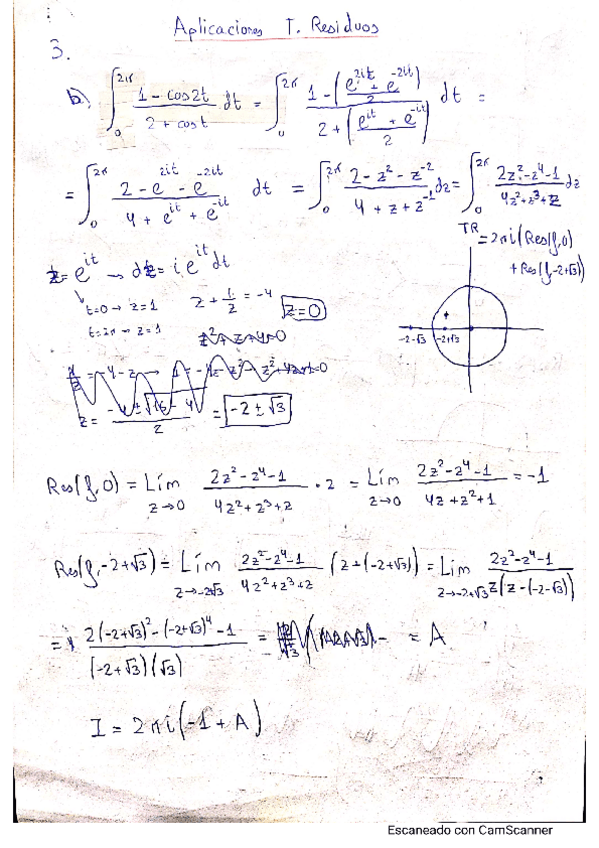 Aplicaciones T. Residuos
3.
b) ∫₀^{2π} (1 - cos2t)/(2 + cost) dt = ∫₀^{2π} (1 - ((e^{2it} + e^{-2it})/2))/(2 + ((e^{it} + e^{-it})/2)) dt =
= ∫₀^{2π} (2 - e^{2it} - e^{-2it})/(4 + e^{it} + e^{-it}) dt = ∫₀^{2π} (2 - z² - z^{-2})/(4 + z + z^{-1}) dz = ∫₀^{2π} (2z² - z⁴ - 1)/(4z² + z³ + z) dz
TR
= 2πi(Res(f,0)
+ Res(f,-2+√3))
z = e^{it} → dz = i e^{it} dt
t=0 → z=1
z + 1/z = -4
z=0
t=2π → z=1
-2-√3 -2+√3
z = = -2 ± √3
Res(f,0) = Lím z→0 (2z² - z⁴ - 1)/(4z² + z³ + z) · z = Lím z→0 (2z² - z⁴ - 1)/(4z + z² + 1) = -1
Res(f,-2+√3) = Lím (2z² - z⁴ - 1)/(4z² + z³ + z) (z + (-2+√3)) = Lím z→-2+√3 (2z² - z⁴ - 1)/(z(z - (-2-√3)))
= (2(-2+√3)² - (-2+√3)⁴ - 1)/((-2+√3)(√3)) = = A
I = 2πi(-1 + A)
Escaneado con CamScanner